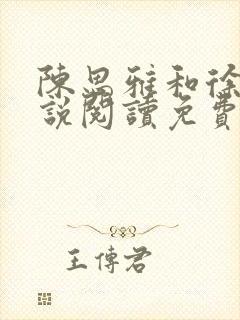 陳思雅和徐
說閱讀免費
王傳君